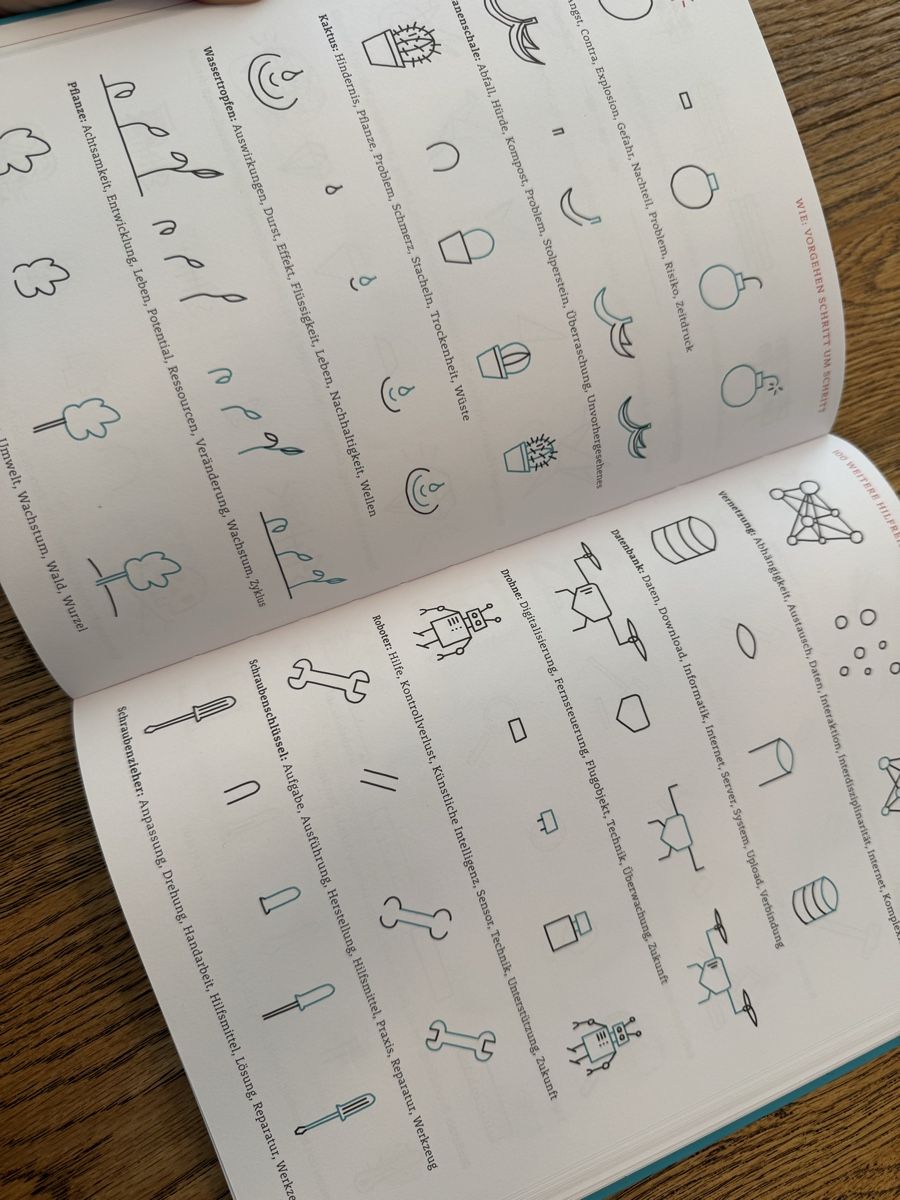 WIE: VORGEHEN SCHRITT UM SCHRITT
Contra, Explosion, Gefahr, Nachteil, Problem, Risiko, Zeitdruck
Abfall, Hürde, Kompost, Problem, Stolperstein, Überraschung, Unvorhergesehenes
Kaktus: Hindernis, Pflanze, Problem, Schmerz, Stacheln, Trockenheit, Wüste
Wassertropfen: Auswirkungen, Durst, Effekt, Flüssigkeit, Leben, Nachhaltigkeit, Wellen
Pflanze: Achtsamkeit, Entwicklung, Leben, Potential, Ressourcen, Veränderung, Wachstum, Zyklus
Umwelt, Wachstum, Wald, Wurzel
100 WEITERE
Vernetzung: Abhängigkeit, Austausch, Daten, Interaktion, Interdisziplinarität, Internet,
Datenbank: Daten, Download, Informatik, Internet, Server, System, Upload, Verbindung
Drohne: Digitalisierung, Fernsteuerung, Flugobjekt, Technik, Überwachung, Zukunft
Roboter: Hilfe, Kontrollverlust, Künstliche Intelligenz, Sensor, Technik, Unterstützung, Zukunft
Schraubenschlüssel: Aufgabe, Ausführung, Herstellung, Hilfsmittel, Praxis, Reparatur, Werkzeug
Schraubenzieher: Anpassung, Drehung, Handarbeit, Hilfsmittel, Lösung, Reparatur,